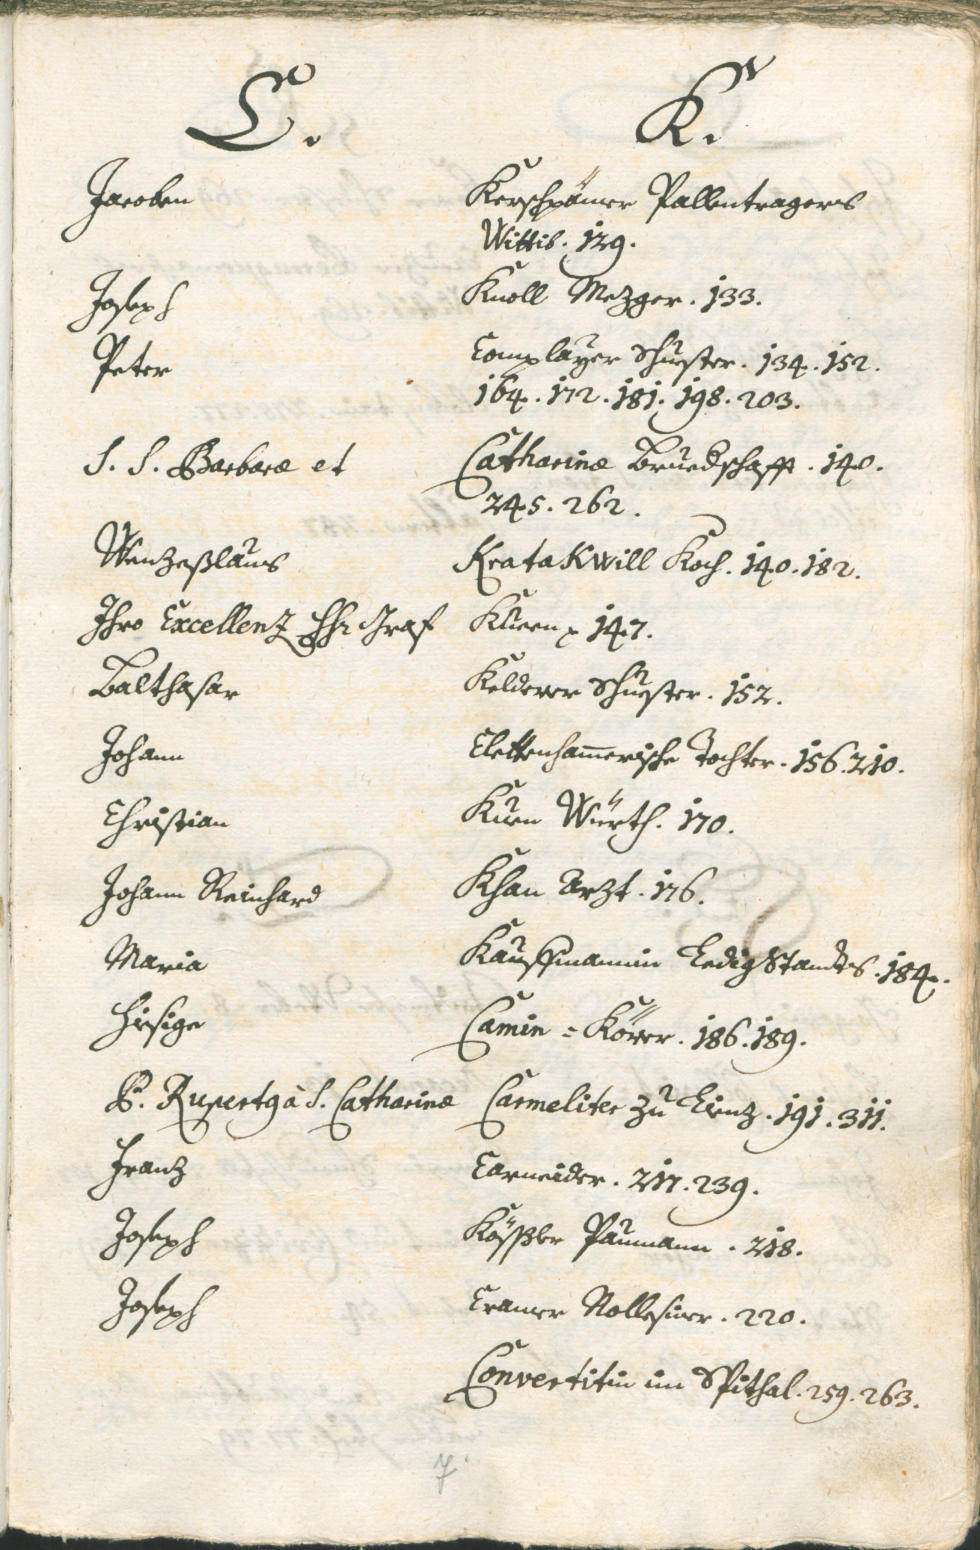 C. K.
Jacoben Kerschpämer Pallentragers
Wittib. 129.
Joseph Knoll Mezger. 133.
Peter Complayer Schuester. 134. 152.
164. 172. 181. 198. 203.
S. S. Barbaræ et Catharinæ Bruedschafft. 140.
245. 262.
Wentzeßlaus KrataKwill Koch. 140. 182.
Ihro Excellentz Graf Kuen 147.
Balthasar Kelderer Schuester. 152.
Johann Clettenham̄erische Tochter. 156. 210.
Christian Kuen Würth. 170.
Johann Reinhard Khan Arzt. 176.
Maria Kauffmannin Ledig Standts. 184.
Hiesige Camin = Körer. 186. 189.
P. Rupertg à S. Catharinæ Carmeliter zu Lientz. 191. 311.
Frantz Carneider. 217. 239.
Joseph Kößler Paumann. 218.
Joseph Cramer 220.
Convertitin im Spithal. 259. 263.
7